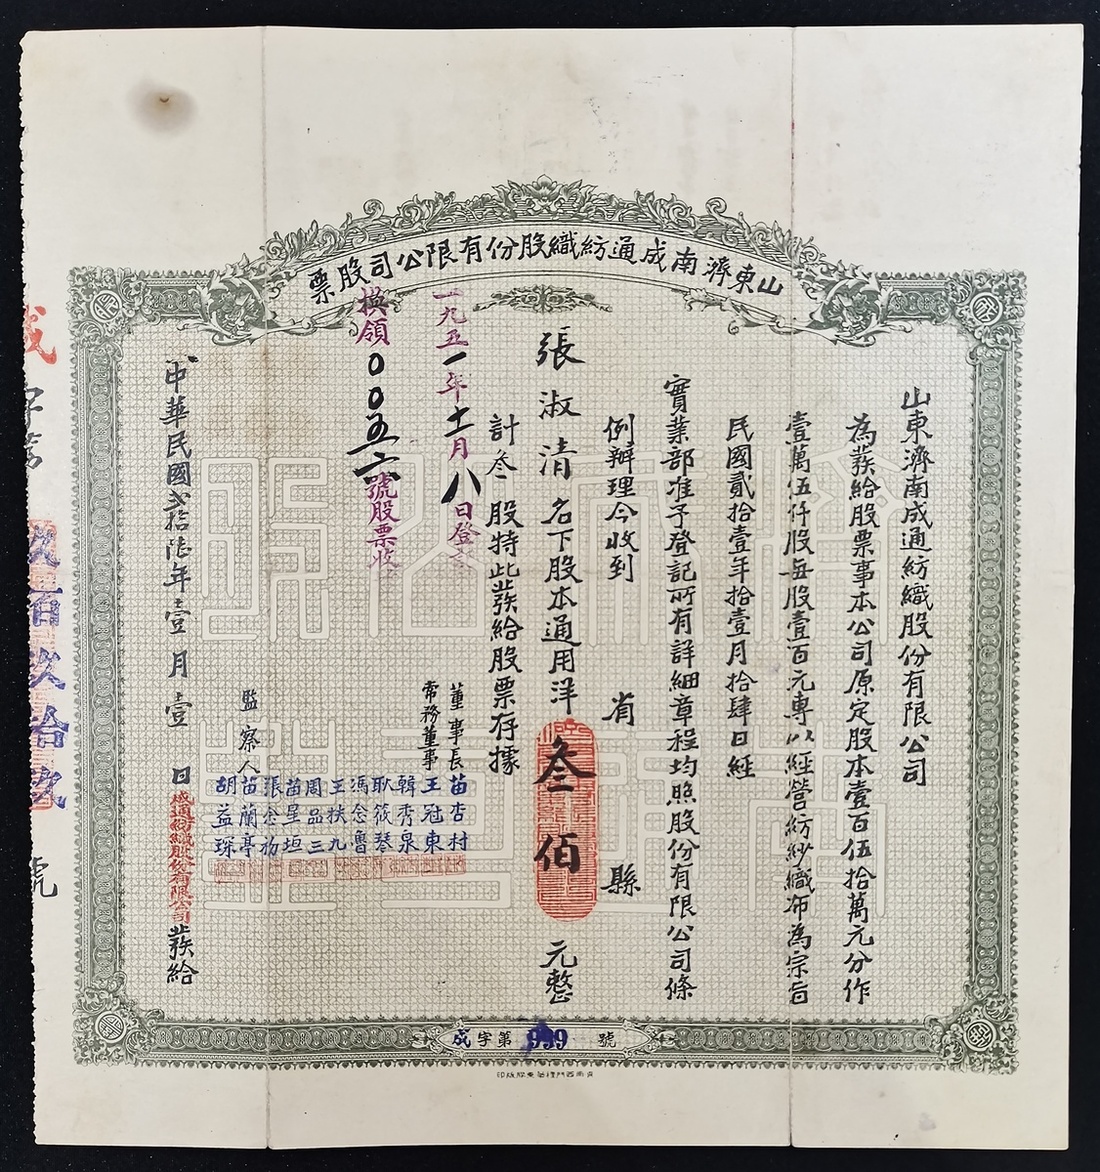 山東濟南成通紡織股份有限公司股票
山東濟南成通紡織股份有限公司
為發給股票事本公司原定股本壹百伍拾萬元分作
壹萬伍仟股每股壹百元專以經營紡紗織布為宗旨
民國貳拾壹年拾壹月拾肆日經
實業部准予登記所有詳細章程均照股份有限公司條
例辦理今收到 省 縣
張淑清名下股本通用洋叁佰元整
計叁股特此發給股票存據
一九五一年十一月八日登記
換領00五六號股票收
董事長 苗杏村
常務董事 王冠東
韓秀泉
耿筱琴
馮念魯
王扶九
周品三
苗星垣
張念礽
監察人 苗蘭亭
胡益琛
中華民國貳拾陸年壹月壹日成通紡織股份有限公司發給
成字第 號
成字第 玖百玖拾玖 號